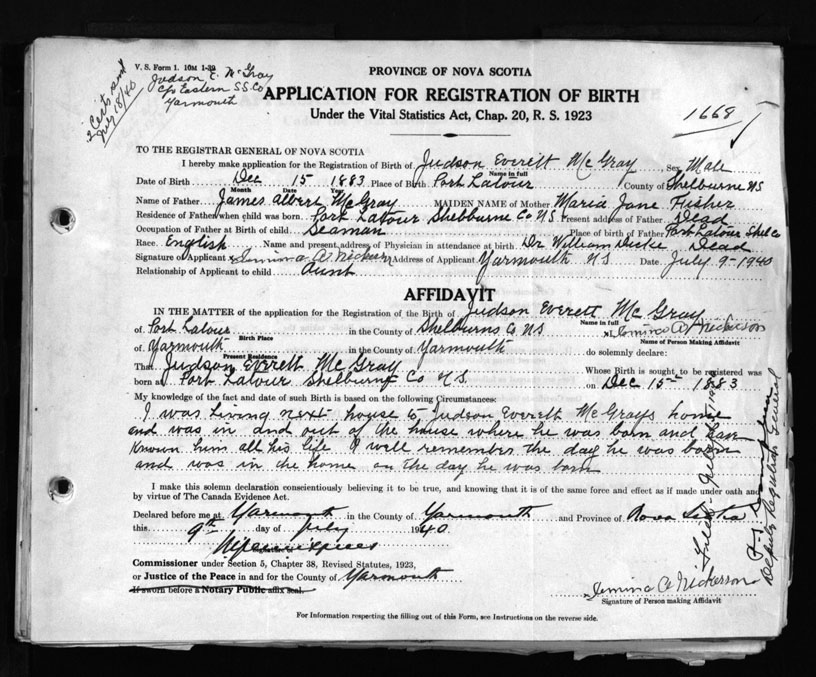 V. S. Form 1. 10M 1-39
Judson E. McGray
c/o Eastern S.S. Co
Yarmouth
2 Certs sent
July 18/40
PROVINCE OF NOVA SCOTIA
APPLICATION FOR REGISTRATION OF BIRTH
Under the Vital Statistics Act, Chap. 20, R. S. 1923
1668
TO THE REGISTRAR GENERAL OF NOVA SCOTIA
I hereby make application for the Registration of Birth of Judson Everett McGray Sex Male
Name in full
Date of Birth Dec 15 1883 Place of Birth Port Latour County of Shelburne NS
Month Date Year
Name of Father James Albert McGray MAIDEN NAME of Mother Maria Jane Fisher
Residence of Father when child was born Port Latour Shelburne Co N.S. Present address of Father Dead
Occupation of Father at Birth of child Seaman Place of birth of Father Port Latour Shel Co
Race English Name and present address of Physician in attendance at birth Dr William Dicke Dead
Signature of Applicant x Jemima A. Nickerson Address of Applicant Yarmouth N.S Date July 9-1940
Relationship of Applicant to child Aunt
AFFIDAVIT
IN THE MATTER of the application for the Registration of the Birth of Judson Everett McGray
Name in full
of Port Latour in the County of Shelburne Co NS x Jemima A Nickerson
Birth Place Name of Person Making Affidavit
of Yarmouth in the County of Yarmouth do solemnly declare:
Present Residence
That Judson Everett McGray Whose Birth is sought to be registered was
born at Port Latour Shelburne Co N.S. on Dec 15th 1883
My knowledge of the fact and date of such Birth is based on the following Circumstances:
I was living next house to Judson Everett McGrays home
and was in and out of the house where he was born and have
known him all his life I well remember the day he was born
and was in the home on the day he was born
I make this solemn declaration conscientiously believing it to be true, and knowing that it is of the same force and effect as if made under oath and
by virtue of The Canada Evidence Act.
Declared before me at Yarmouth in the County of Yarmouth and Province of Nova Scotia
this 9th day of July 1940
Commissioner under Section 5, Chapter 38, Revised Statutes, 1923,
or Justice of the Peace in and for the County of Yarmouth
If sworn before a Notary Public affix seal.
Jemima A Nickerson
Signature of Person making Affidavit
Deputy Registrar General
For Information respecting the filling out of this Form, see Instructions on the reverse side.